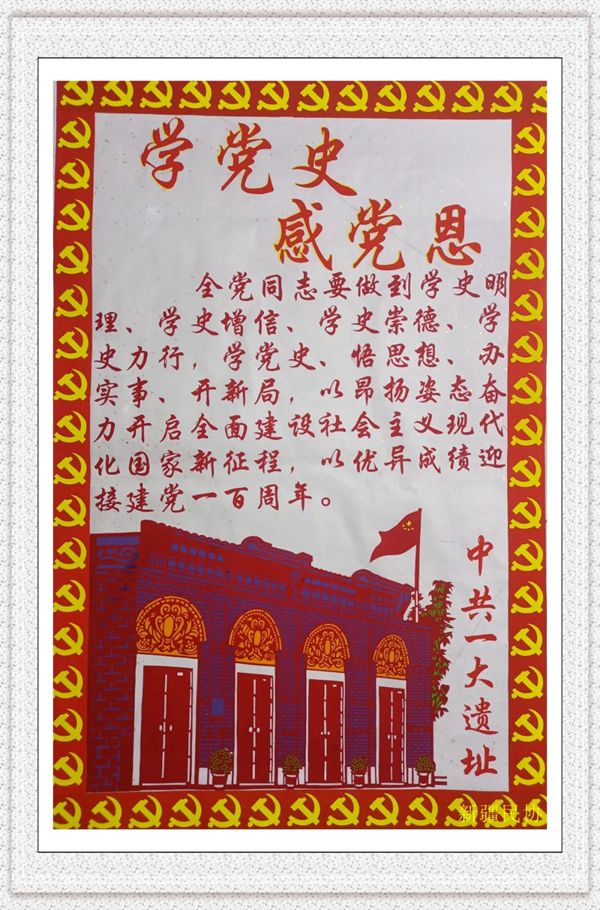 学党史
感党恩
全党同志要做到学史明
理、学史增信、学史崇德、学
史力行，学党史、悟思想、办
实事、开新局，以昂扬姿态奋
力开启全面建设社会主义现代
化国家新征程，以优异成绩迎
接建党一百周年。
中共一大遗址
新疆民协